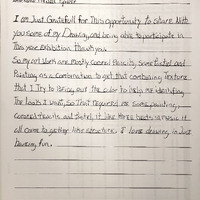 I am Just Gratefull for This opportunity to share With
you some of my Drawing, and being able to participate in
This year exhibition thank you.
So my art work are mostly colored Pencils, Some Pastel and
Painting as a combination to get that combining Texture
that I Try to bring out the color to help me identifying
The look I want, So That required me some painting,
colored Pencils and Pastel, It like three beats in music it
all come together like structure. I love drawing im Just
having fun.